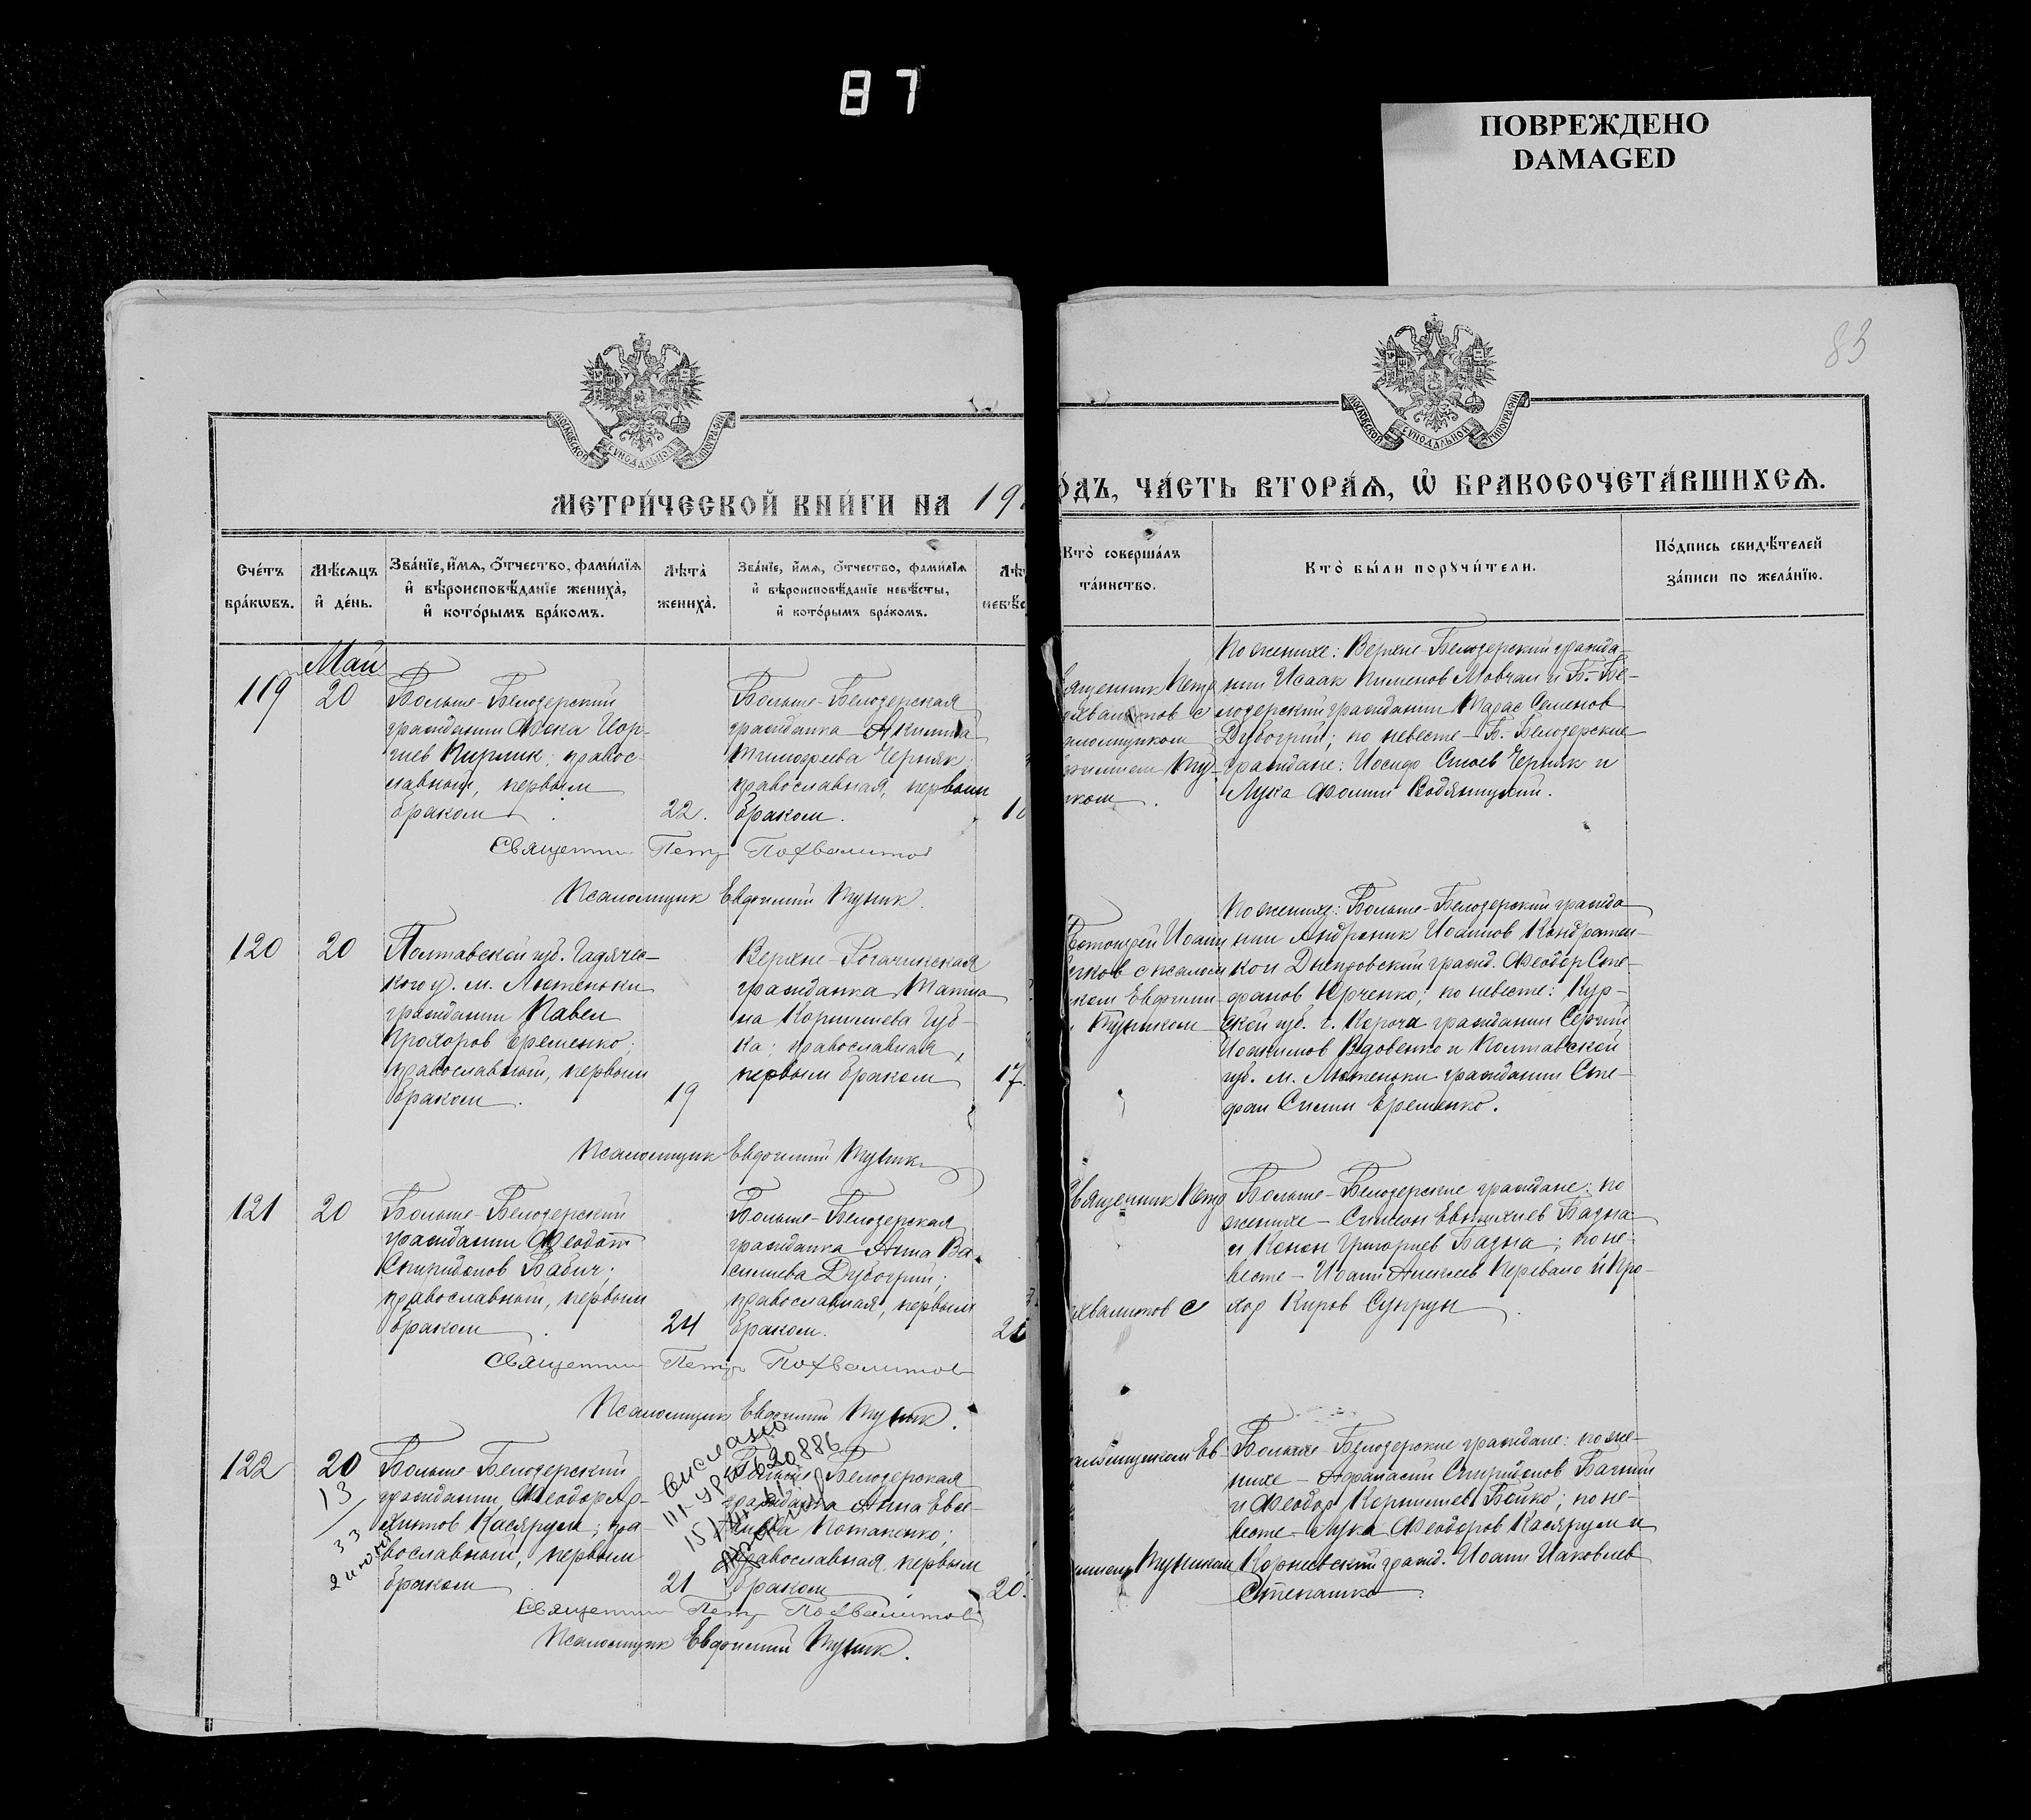 87
ПОВРЕЖДЕНО
DAMAGED
83
МОСКОВСКОЙ СУНОДАЛЬНОЙ ТИПОГРАФИИ
МОСКОВСКОЙ СУНОДАЛЬНОЙ ТИПОГРАФИИ
МЕТРИ́ЧЕСКОЙ КНИ́ГИ НА 19
ОДЪ, ЧА́СТЬ ВТОРА́Ѧ, Ѡ҆ БРАКОСОЧЕТА́ВШИХСѦ.
Сче́тъ
бра́кѡвъ.
Мѣ́сѧцъ
и҆ де́нь.
Зва́нїе, и҆́мѧ, ѻ҆́тчество, фами́лїѧ
и҆ вѣроисповѣ́данїе жениха̀,
и҆ кото́рымъ бра́комъ.
Лѣта̀
жениха̀.
Зва́нїе, и҆́мѧ, ѻ҆́тчество, фами́лїѧ
и҆ вѣроисповѣ́данїе невѣ́сты,
и҆ кото́рымъ бра́комъ.
Лѣ
невѣ́с
Кто̀ соверша́лъ
та́инство.
Кто̀ бы́ли порꙋчи́тели.
По́дпись свидѣ́телей
за́писи по жела́нїю.
Май
119
20
Больше-Белозерский
гражданин Фока Иор-
гиев Кирлик; правос-
лавный, первым
браком.
22.
Больше-Белозерская
гражданка Акилина
Тимофеева Черняк;
православная, первым
браком.
ященник Петр
охвалитов с
аломщиком
Ту-
ком.
По женихе: Верхне-Белозерский гражда-
нин Исаак Пименов Мовчан и Б.-Бе-
лозерский гражданин Тарас Семенов
Дубогрий; по невесте - Б. Белозерские
граждане: Иосиф Черняк и
Лука Фомин Водяницкий.
Священник Петр Похвалитов
Псаломщик Евфимий Тупик.
120
20
Полтавской губ. Гадячес-
кого у. м. Лютеньки
гражданин Павел
Прохоров Еременко;
православный, первым
браком.
19
Верхне-Рогачикская
гражданка Татиа-
на Корнилиева Губ-
ка; православная,
первым браком
17.
Иоанн
с псалом
ком Евфими
Тупиком
По женихе: Больше-Белозерский гражда-
нин Андроник Иоаннов Кондратен-
ко и Днепровский гражд. Феодор Сте-
фанов Юрченко; по невесте: Кур-
ской губ. г. Короча гражданин Сергий
Иоакимов Вдовенко и Полтавской
губ. м. Лютеньки гражданин Сте-
фан Еременко.
Псаломщик Евфимий Тупик
121
20
Больше-Белозерский
гражданин Феодот
Спиридонов Бабич;
православный, первым
браком.
24
Больше-Белозерская
гражданка Анна Ва-
силиева Дубогрий;
православная, первым
браком.
вященник Петр
охвалитов с
Больше-Белозерские граждане: по
женихе - Симеон Евтихиев Базна
и Конон Григориев Базна; по не-
весте - Иоанн Алексеев Перевало и Про-
хор Киров Супрун.
Священник Петр Похвалитов
Псаломщик Евфимий Тупик.
122
20
13
33
2 июня
Больше-Белозерский
гражданин Феодор Ар-
хипов Касярум; пра-
вославный, первым
браком
21
выслано
Больше-Белозерская
гражданка Анна Евсе-
Потапенко;
православная, первым
браком
20.
аломщиком Ев-
Тупиком
Больше-Белозерские граждане: по же-
нихе - Афанасий Спиридонов Багний
и Феодор Корнилиев Бойко; по не-
весте - Лука Феодоров Касярум и
гражд. Иоанн Иаковлев
Степашко.
Священник Петр Похвалитов
Псаломщик Евфимий Тупик.